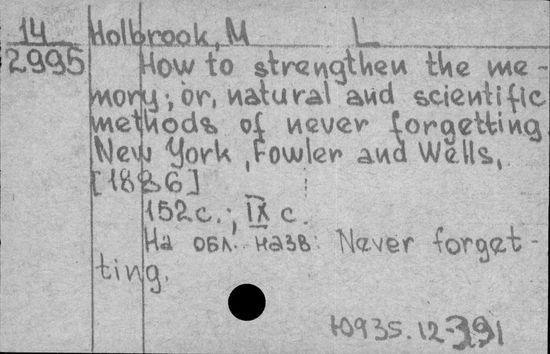 14 Holbrook, M L
2995 How to strengthen the me-
mory; or, natural and scientific
methods of never forgetting
New York, Fowler and Wells,
[1886]
152 с.; IX с.
На обл. назв: Never forget-
ting.
Ю935.12-391